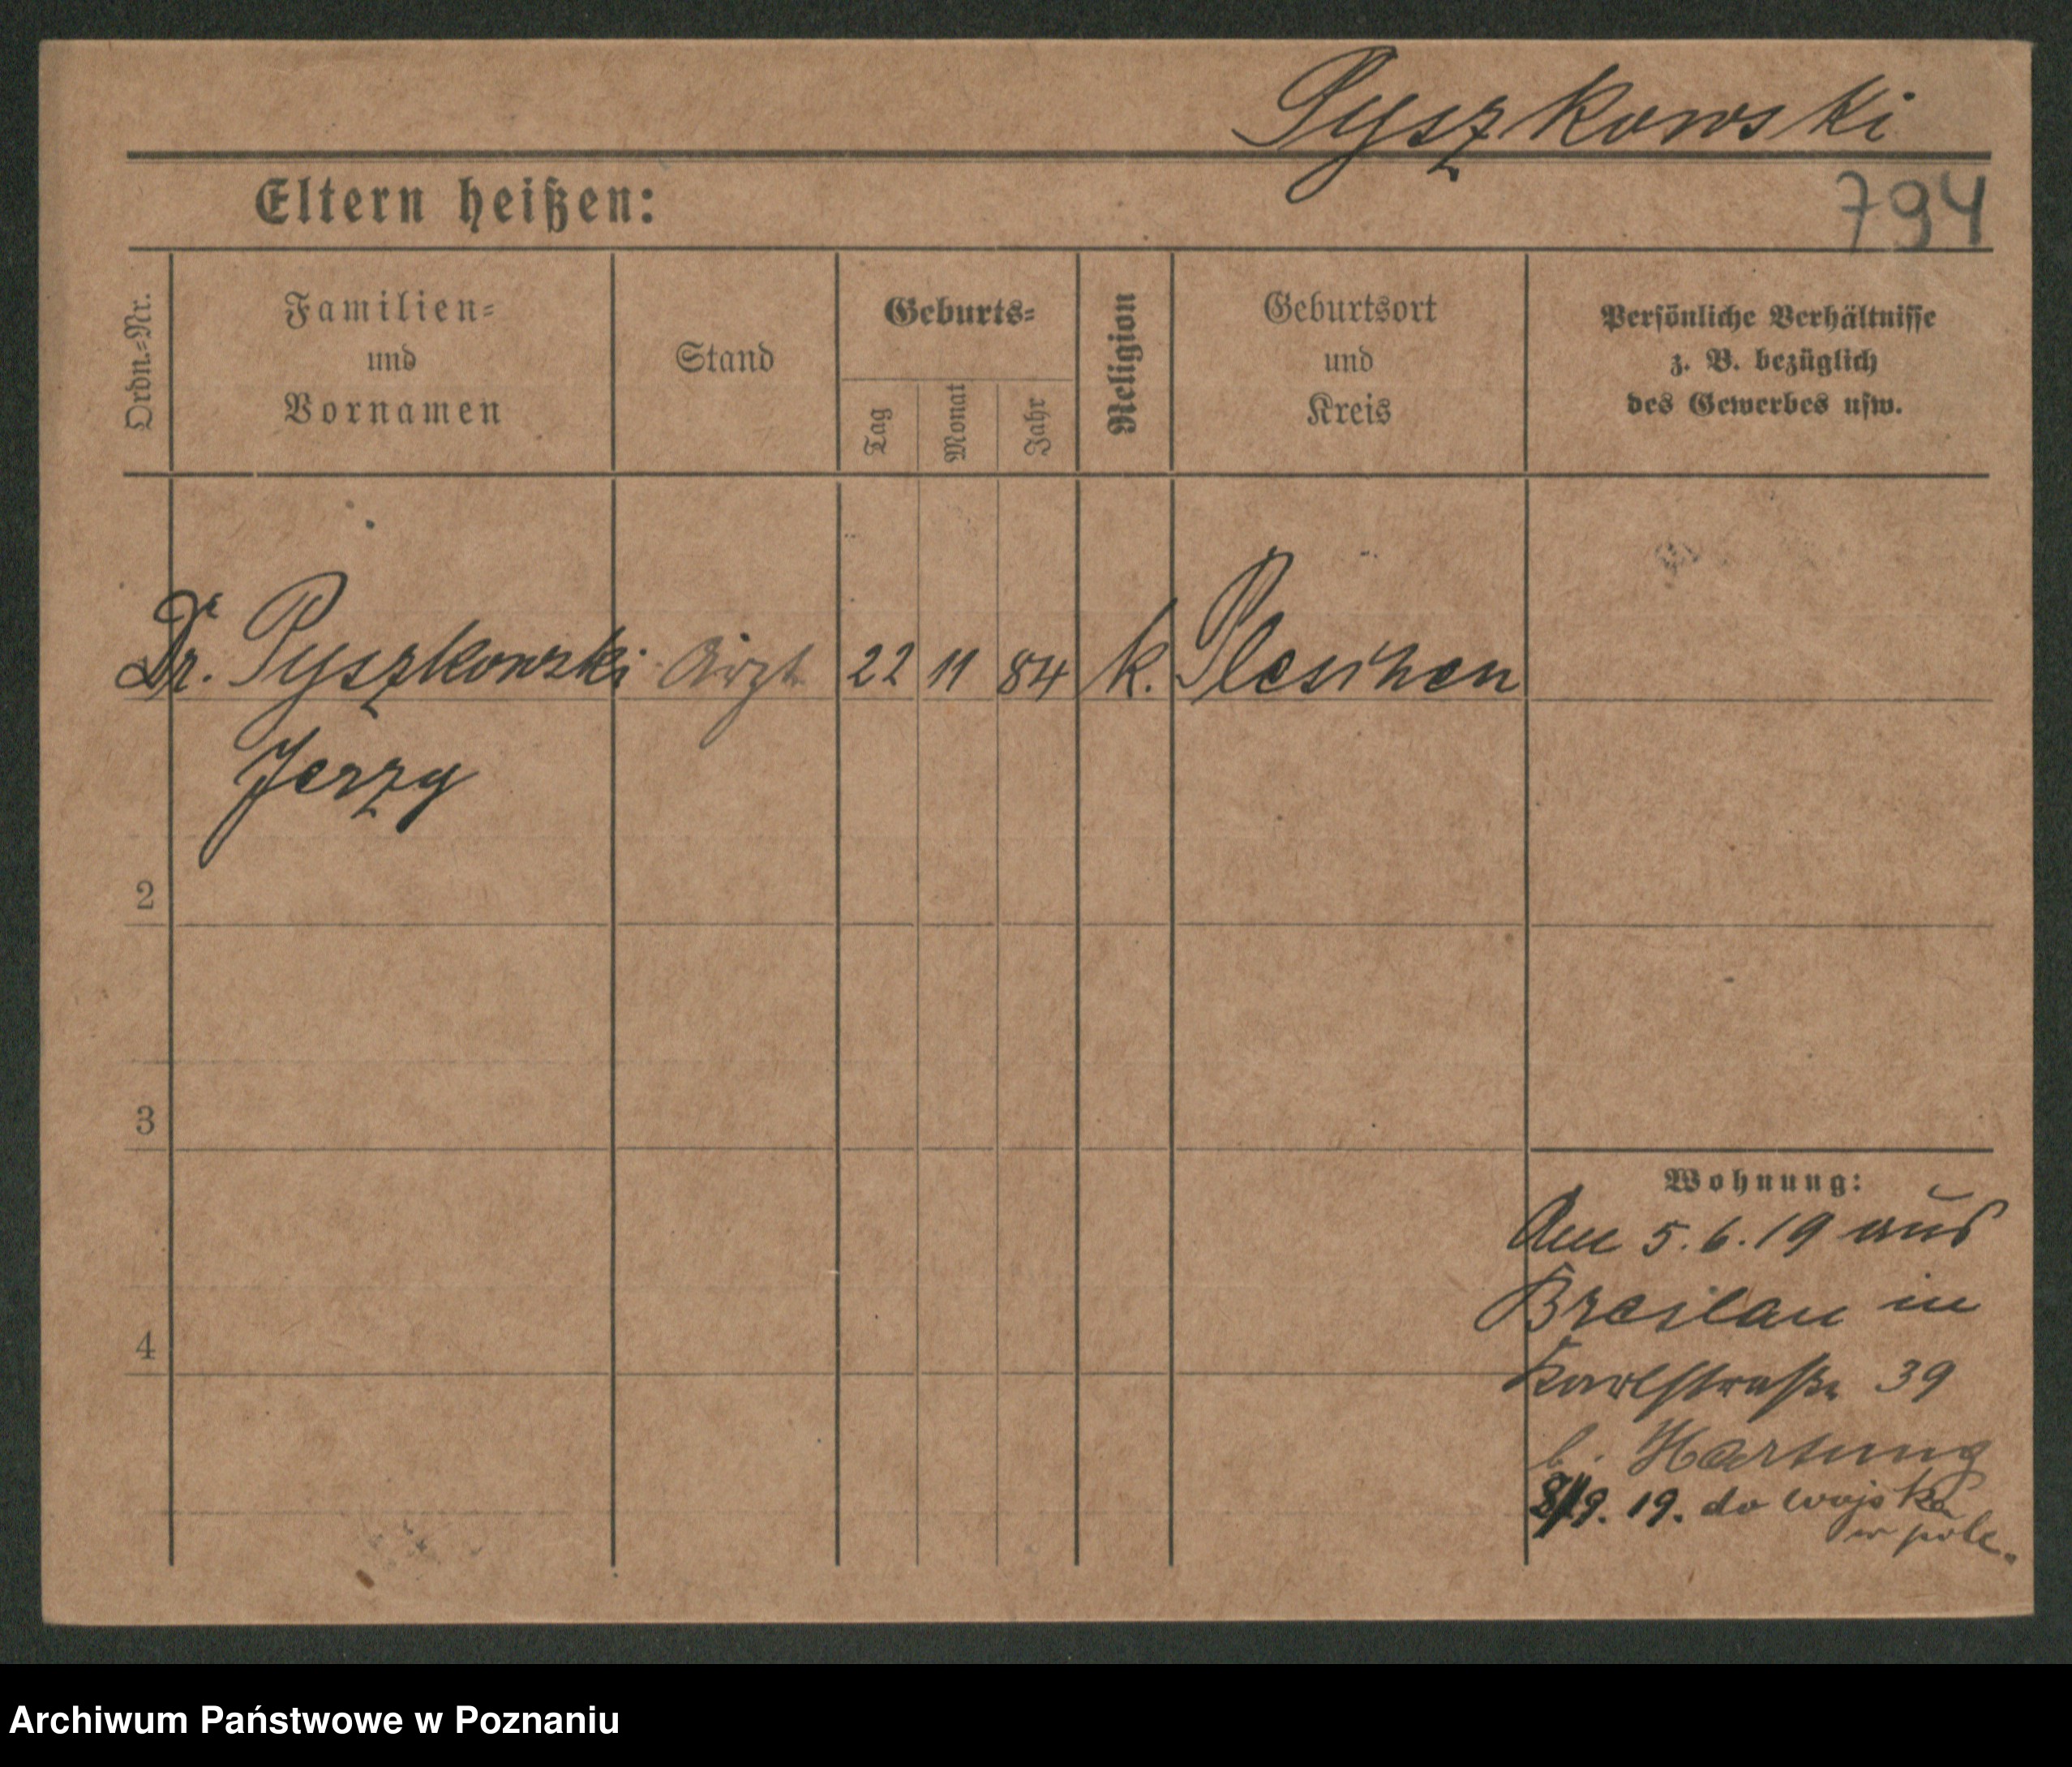 Pyszkowski
Eltern heißen:
794
Ordn.-Nr.
Familien-
und
Vornamen
Stand
Geburts-
Tag
Monat
Jahr
Religion
Geburtsort
und
Kreis
Persönliche Verhältnisse
z. B. bezüglich
des Gewerbes usw.
Dr. Pyszkowski Arzt 22 11 84 k. Pleschen
Jerzy
2
3
4
Wohnung:
Am 5.6.19 aus
Breslau in
Karlstraße 39
b. Hartung
9. 19. do wojska
w pole.
Archiwum Państwowe w Poznaniu